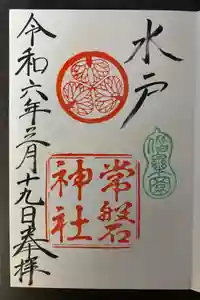 水戸
常磐
神社
令和六年三月十九日奉拝